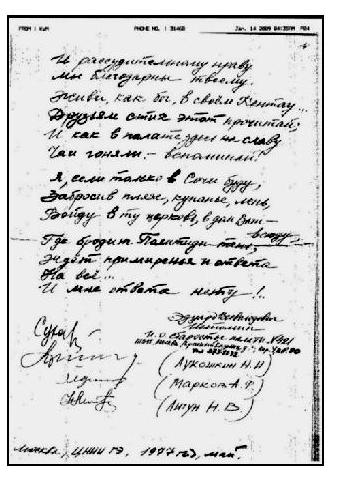 FROM : KWM PHONE NO. : 31460 Jan. 14 2009 04:35PM P04
И рассудительному нраву
Мы благодарны твоему.
Живи, как бы, в своём Кентау...
Друзьям стих этот прочитай,
И как в палате здесь на славу
Чаи гоняли, – вспоминай!
Я, если только в Сочи буду,
Забросив пляж, купанье, лень,
Войду в ту церковь, в дан
Где бродит Паптиди тень,
Ждёт примиренья и ответа
На всё...
И мне ответа нету!..
Эдуард
И.о. старосты палаты №421
(Лукошкин Н.И)
(Маркот А.Ф)
(Аптун Н.В)
Москва, 1977 год, май.